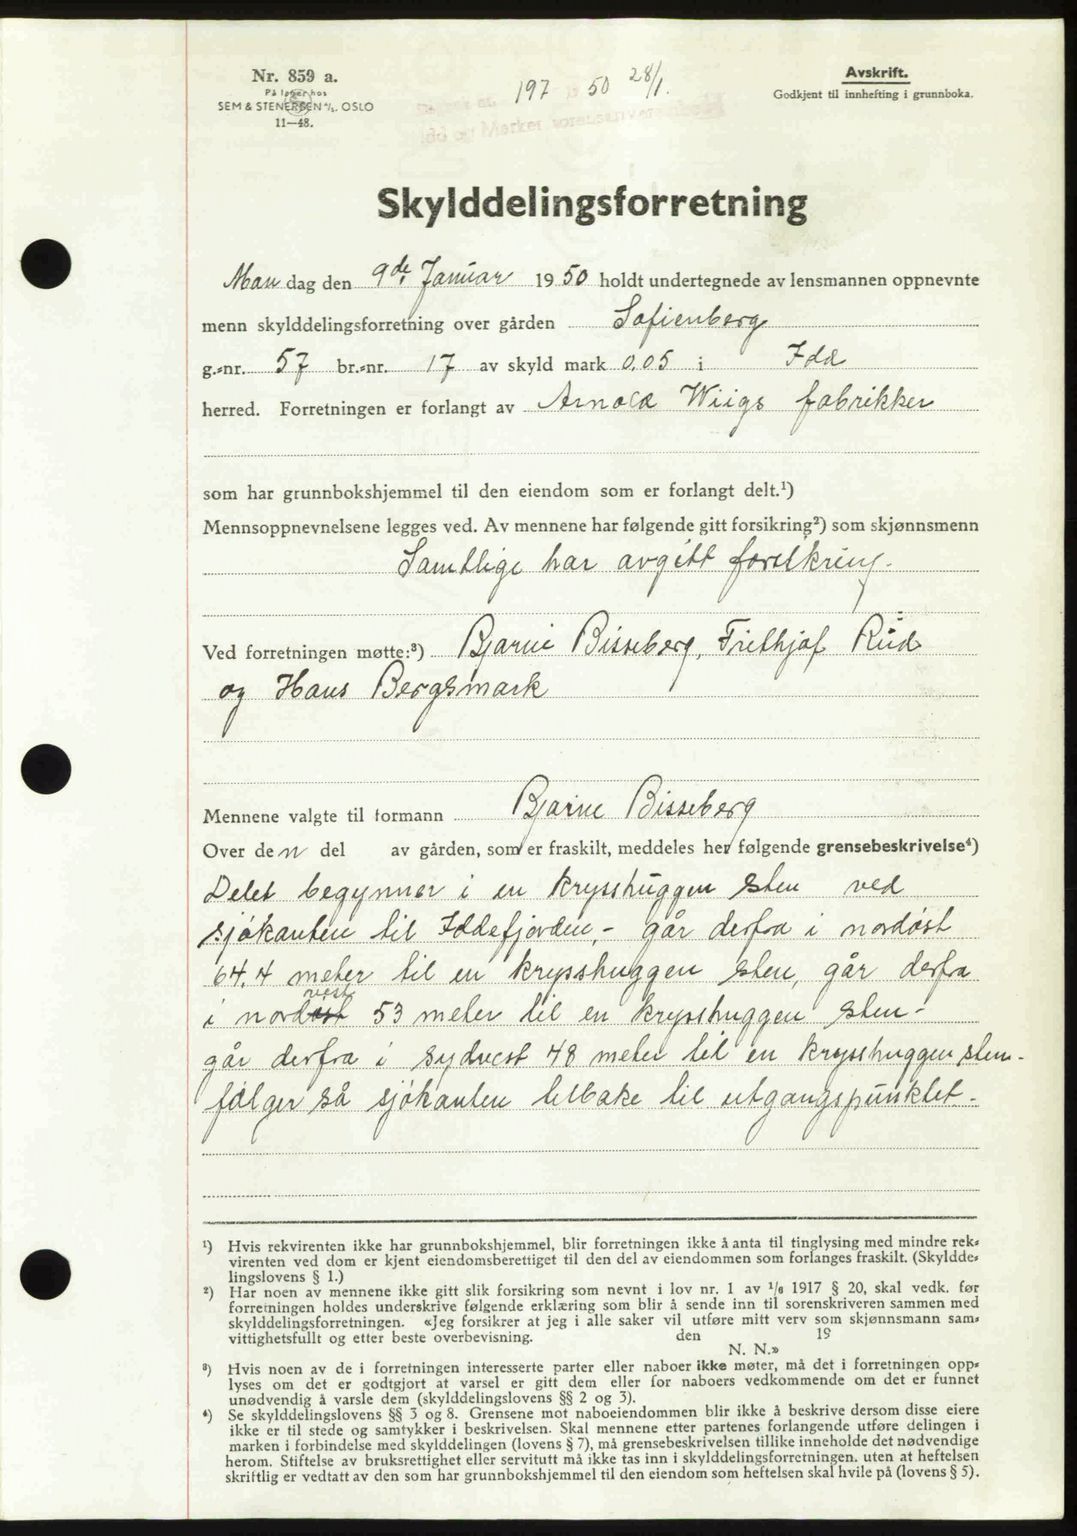 Nr. 859 a.
På lager hos
SEM & STENERSEN A/S. OSLO
11—48.
197 50 28/1.
Avskrift.
Godkjent til innhefting i grunnboka.
Idd og Marker sorenskriverembete
Skylddelingsforretning
Man dag den 9de Januar 1950 holdt undertegnede av lensmannen oppnevnte
menn skylddelingsforretning over gården Sofienberg
g.-nr. 57 br.-nr. 17 av skyld mark 0,05 i Idd
herred. Forretningen er forlangt av Arnold Wiigs fabrikker
som har grunnbokshjemmel til den eiendom som er forlangt delt.¹)
Mennsoppnevnelsene legges ved. Av mennene har følgende gitt forsikring²) som skjønnsmenn
Samtlige har avgitt forsikring.
Ved forretningen møtte:³) Bjarne Bisseberg, Frithjof Rūd
og Hans Bergsmark
Mennene valgte til formann Bjarne Bisseberg
Over den del av gården, som er fraskilt, meddeles her følgende grensebeskrivelse⁴)
Delet begynner i en krysshuggen sten ved
sjøkanten til Iddefjorden,- går derfra i nordøst
64,4 meter til en krysshuggen sten, går derfra
vest
i nordøst 53 meter til en krysshuggen sten-
går derfra i sydvest 48 meter til en krysshuggen sten-
følger så sjøkanten tilbake til utgangspunktet-
¹) Hvis rekvirenten ikke har grunnbokshjemmel, blir forretningen ikke å anta til tinglysing med mindre rek-
virenten ved dom er kjent eiendomsberettiget til den del av eiendommen som forlanges fraskilt. (Skyldde-
lingslovens § 1.)
²) Har noen av mennene ikke gitt slik forsikring som nevnt i lov nr. 1 av 1/6 1917 § 20, skal vedk. før
forretningen holdes underskrive følgende erklæring som blir å sende inn til sorenskriveren sammen med
skylddelingsforretningen. «Jeg forsikrer at jeg i alle saker vil utføre mitt verv som skjønnsmann sam-
vittighetsfullt og etter beste overbevisning. den 19
N. N.»
³) Hvis noen av de i forretningen interesserte parter eller naboer ikke møter, må det i forretningen opp-
lyses om det er godtgjort at varsel er gitt dem eller for naboers vedkommende om det er funnet
unødvendig å varsle dem (skylddelingslovens §§ 2 og 3).
⁴) Se skylddelingslovens §§ 3 og 8. Grensene mot naboeiendommen blir ikke å beskrive dersom disse eiere
ikke er til stede og samtykker i beskrivelsen. Skal mennene etter partenes forlangende utføre delingen i
marken i forbindelse med skylddelingen (lovens § 7), må grensebeskrivelsen tillike inneholde det nødvendige
herom. Stiftelse av bruksrettighet eller servitutt må ikke tas inn i skylddelingsforretningen, uten at heftelsen
skriftlig er vedtatt av den som har grunnbokshjemmel til den eiendom som heftelsen skal hvile på (lovens § 5).